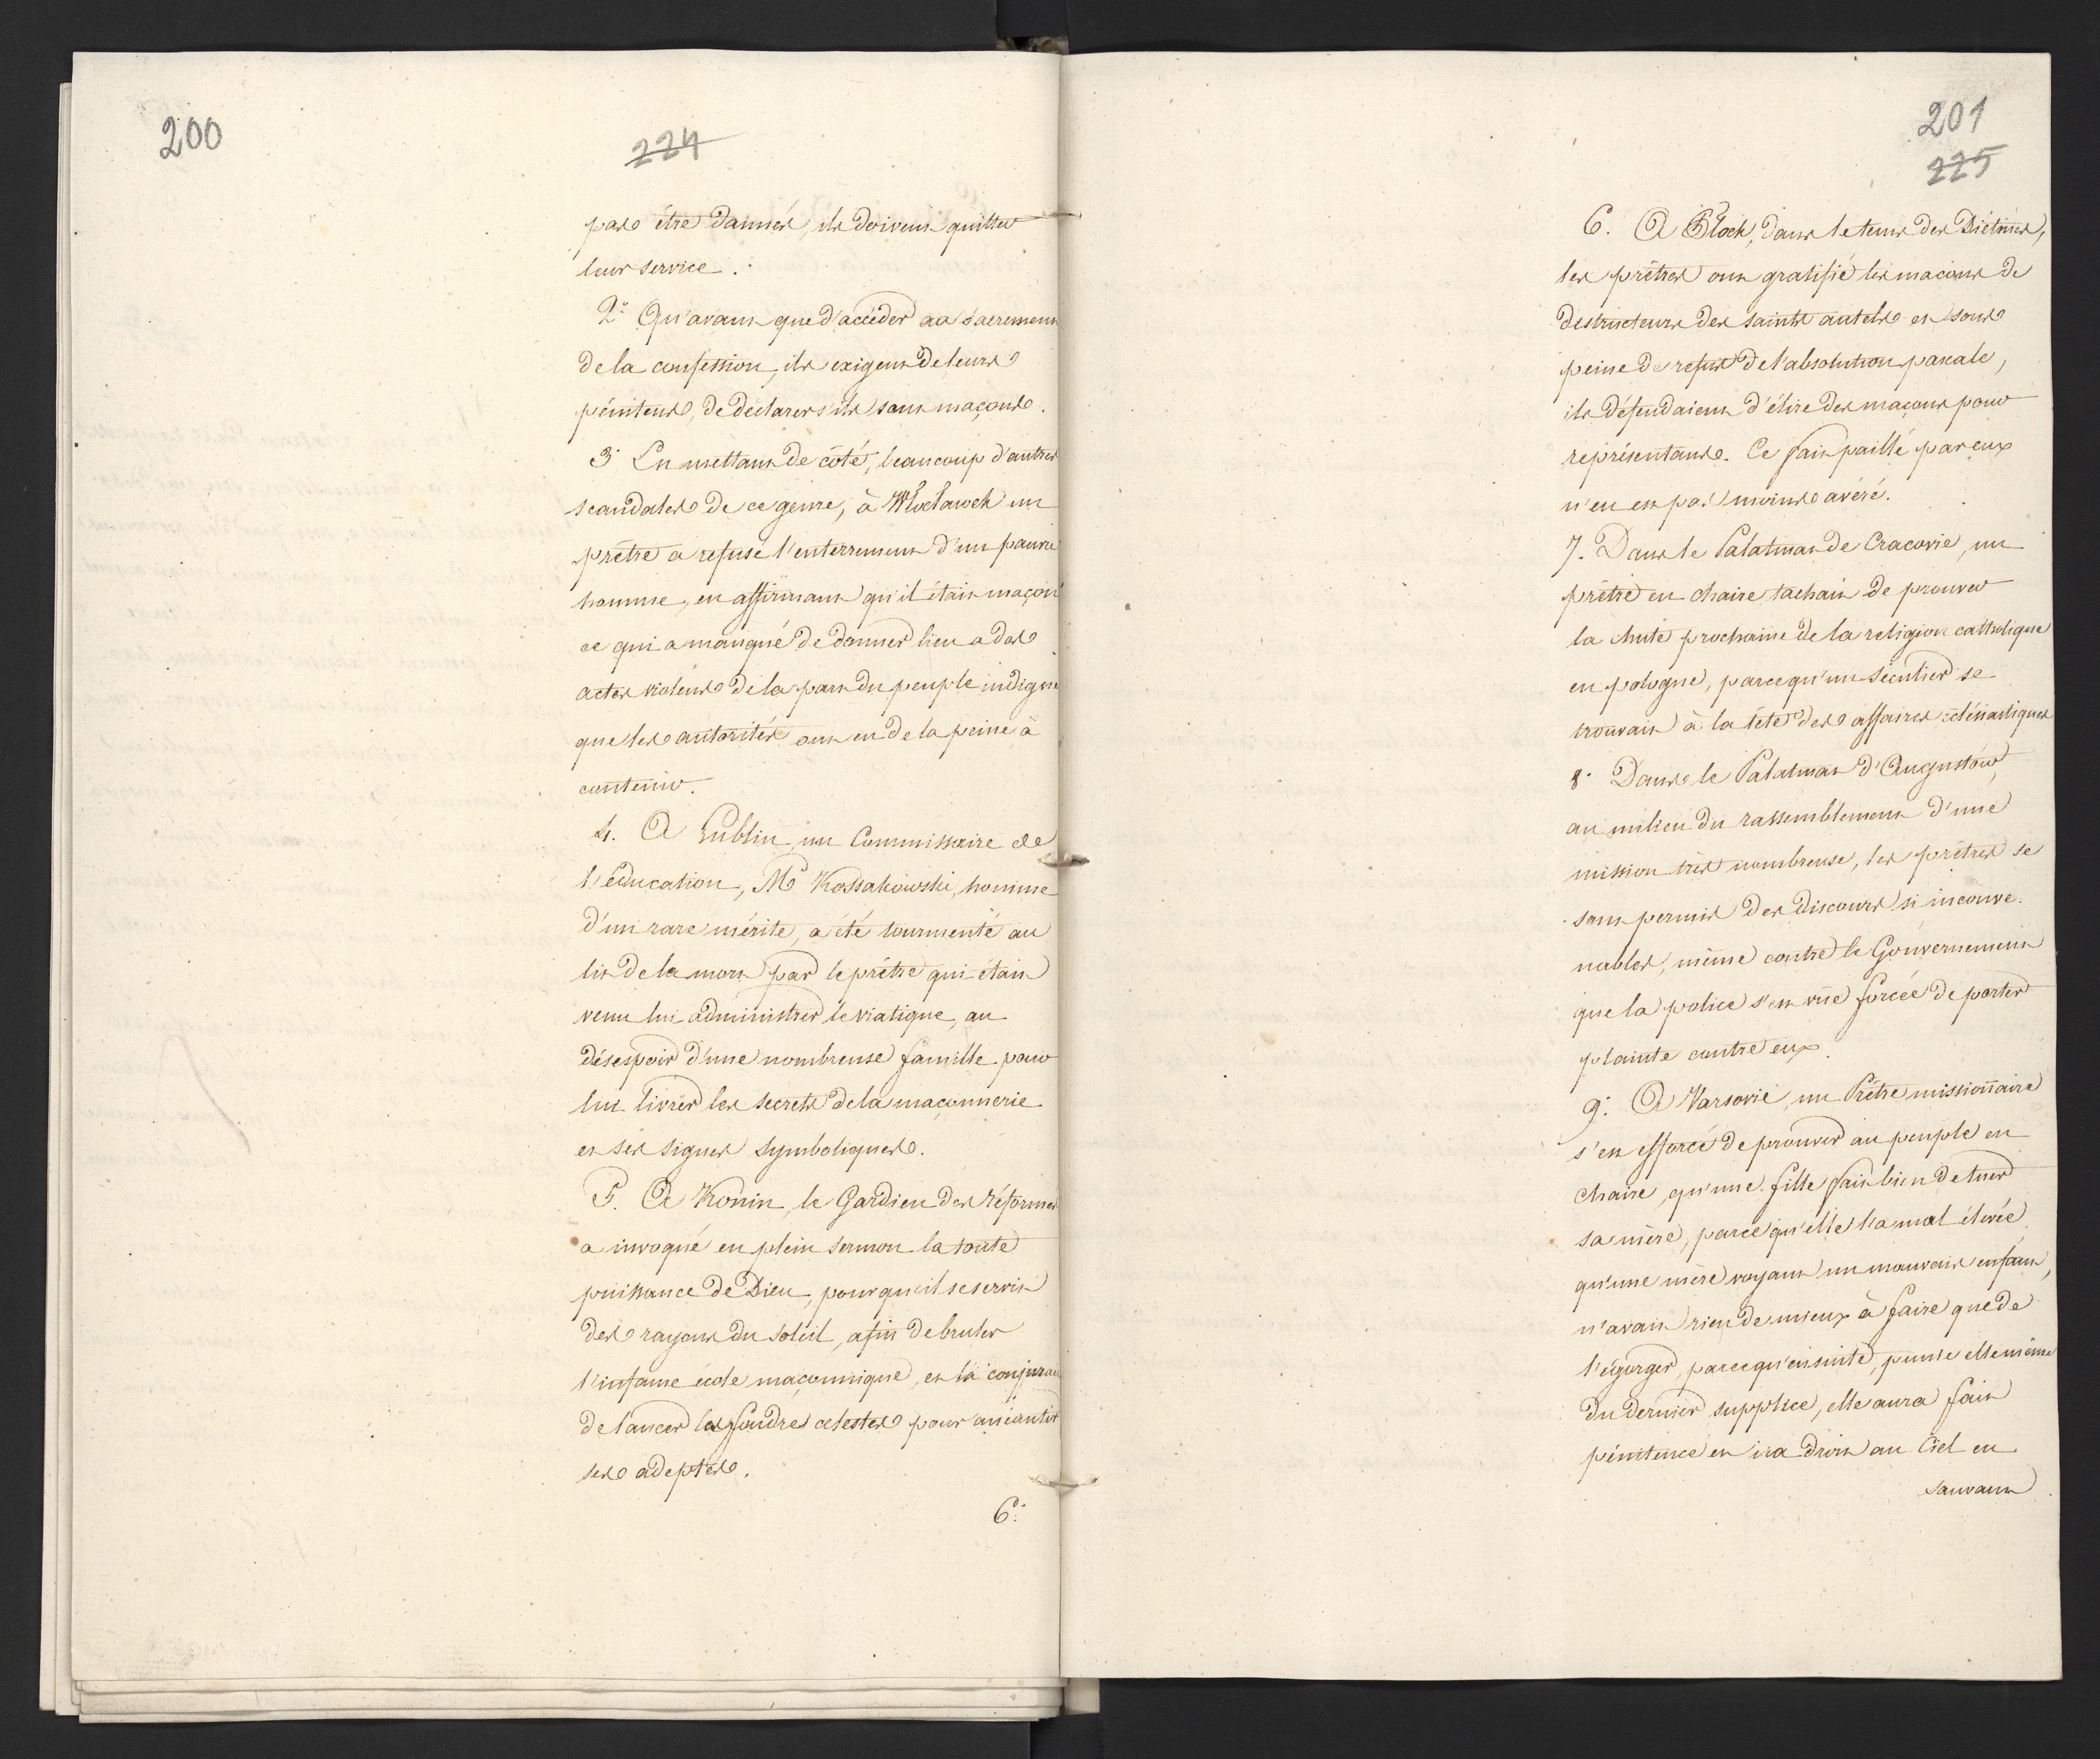 200
224
pas être damnés, ils doivent quitter
leur service.
2.° Qu'avant que d'accéder au sacrement
de la confession, ils exigent de leurs
pénitens, de declarer s'ils sont maçons.
3° En mettant de côté, beaucoup d'autres
scandales de ce genre, à Włocławek un
prêtre a refusé l'enterrement d'un pauvre
homme, en affirmant qu'il était maçon
ce qui a manqué de donner lieu a des
actes violens de la part du peuple indigné
que les autorités ont eu de la peine à
contenir.
4. A Lublin un Commissaire de
l'éducation, Mr Kossakowski, homme
d'un rare mérite, a été tourmenté au
lit de la mort par le prêtre qui était
venu lui administrer le viatique, au
désespoir d'une nombreuse famille pour
lui livrer les secrets de la maçonnerie
et ses signes symboliques.
5. A Konin, le Gardien des réformés
a invoqué en plein sermon la toute
puissance de Dieu, pour qu'il se servit
des rayons du soleil, afin de bruler
l'infame école maçonnique, et la conjurant
de lancer les foudres celestes pour anéantir
ses adeptes.
6.°
201
225
6. A Płock, dans le tems des Diétines,
les prêtres ont gratifié les maçons de
destructeurs des saints autels et sous
peine de refus de l'absolution pascale,
ils défendaient d'élire des maçons pour
représentans. Ce fait paillé par eux
n'en est pas moins avéré.
7. Dans le Palatinat de Cracovie, un
prêtre en chaire tachait de prouver
la chute prochaine de la religion catholique
en pologne, parcequ'un séculier se
trouvait à la tête des affaires eclésiastiques
8° Dans le Palatinat d'Augustów,
au milieu du rassemblement d'une
mission très nombreuse, les prêtres se
sont permis des discours si inconve-
nables, même contre le Gouvernement
que la police s'est vue forcée de porter
plainte contre eux.
9.° A Varsovie un Prêtre missionnaire
s'est efforcé de prouver au peuple en
chaire, qu'une fille fait bien de tuer
sa mère, parce qu'elle l'a mal élevée
qu'une mère voyant un mauvais enfant,
n'avait rien de mieux à faire que de
l'égorger, parcequ'ensuite, punie elle même
du dernier supplice, elle aura fait
pénitence et ira droit au Ciel en
sauvant